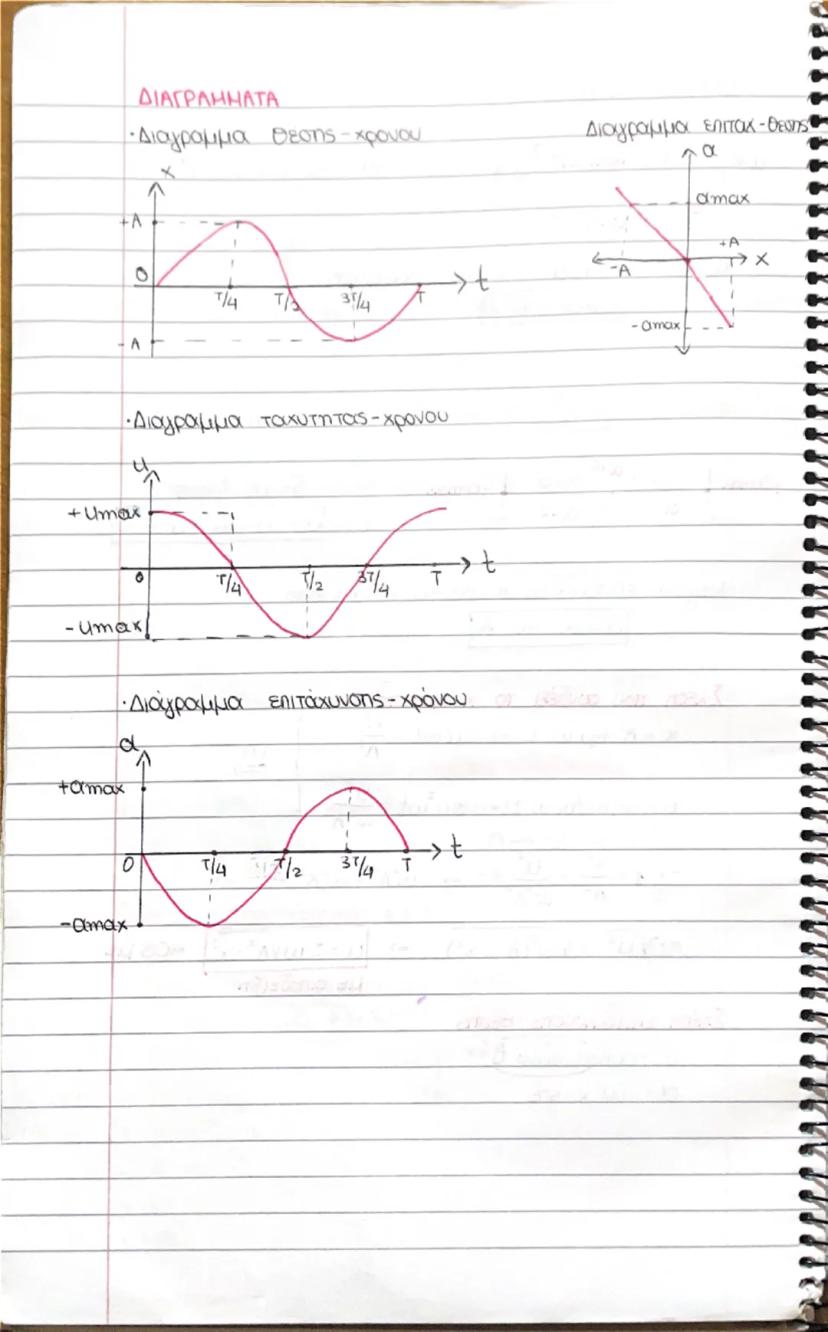 ΔΙΑΓΡΑΜΜΑΤΑ
·Διαγραμμα θεσης-χρονου
x
+A
0
T/4
T/2
3T/4
T
t
-A
Διαγραμμα επιταχ-θεσης
α
αmax
+A
-A
x
-αmax
·Διαγραμμα ταχυτητας-χρονου
u
+umax
0
T/4
T/2
3T/4
T
t
-umax
·Διάγραμμα επιτάχυνσης-χρόνου
α
+αmax
0
T/4
T/2
3T/4
T
t
-αmax